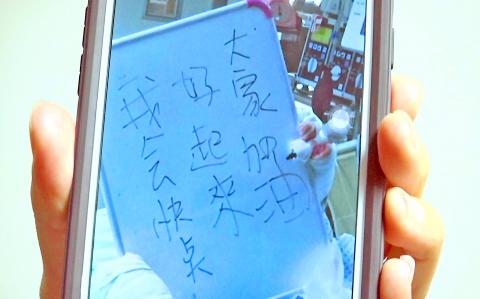 我会快点
好起來
大家加油